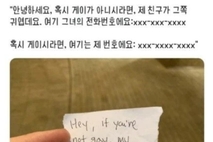 "안녕하세요, 혹시 게이가 아니시라면, 제 친구가 그쪽
귀엽데요. 여기 그녀의 전화번호에요:xxx-xxx-xxxx
혹시 게이시라면, 여기는 제 번호에요: xxx-xxxx-xxxx"
Hey, if you're
not gay, my